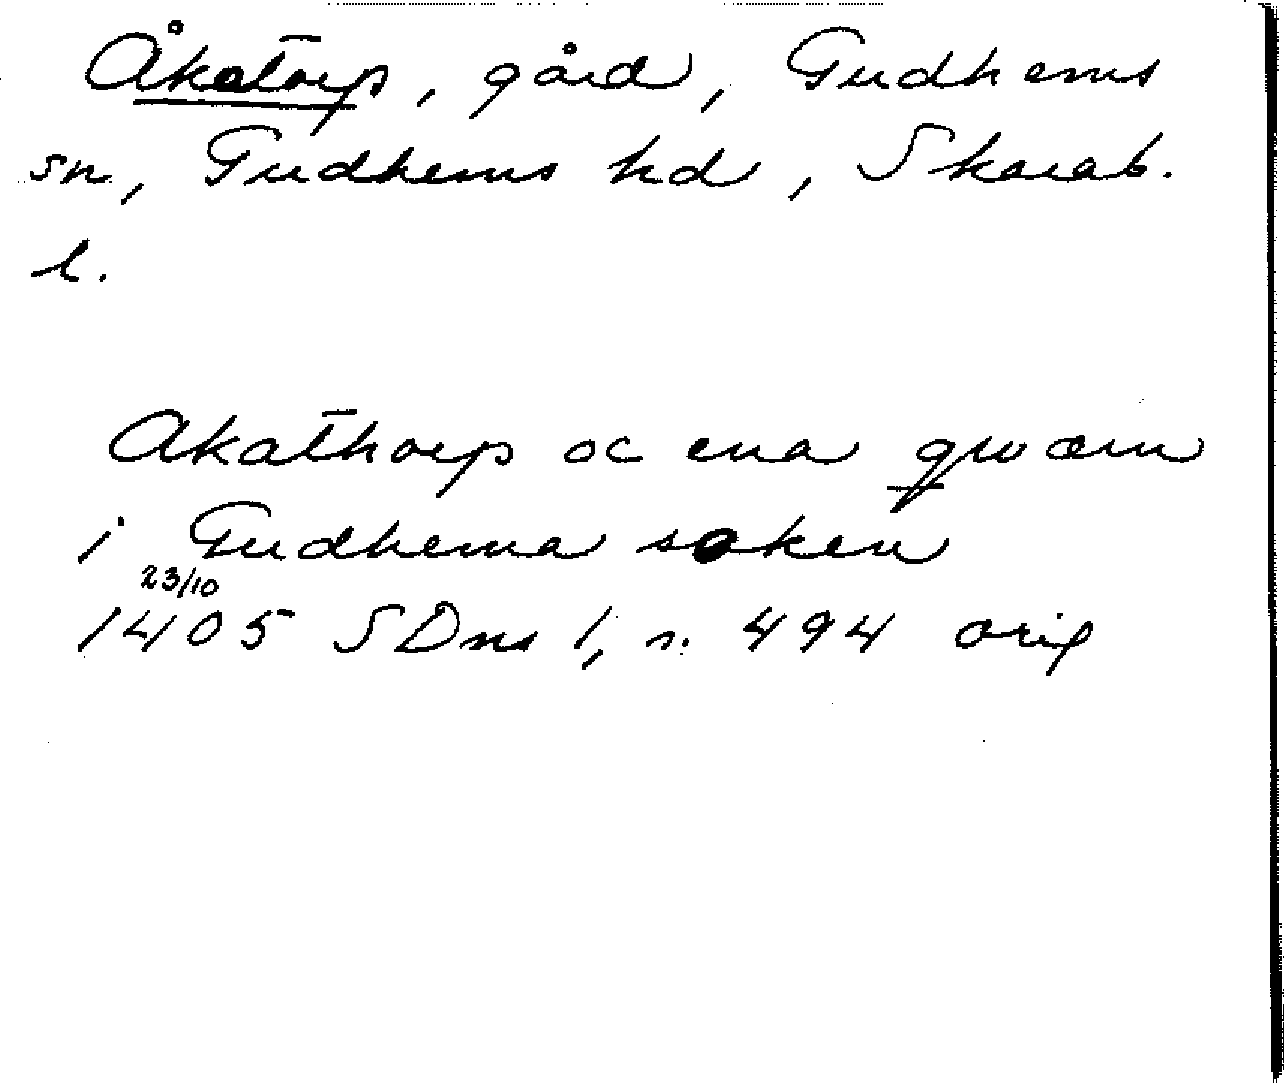 Åkatorp, gård, Gudhems
sn, Gudhems hd, Skarab.
l.
Akathorp oc ena qwærn
i Gudhema soken
23/10
1405 SDns 1, s. 494 orig